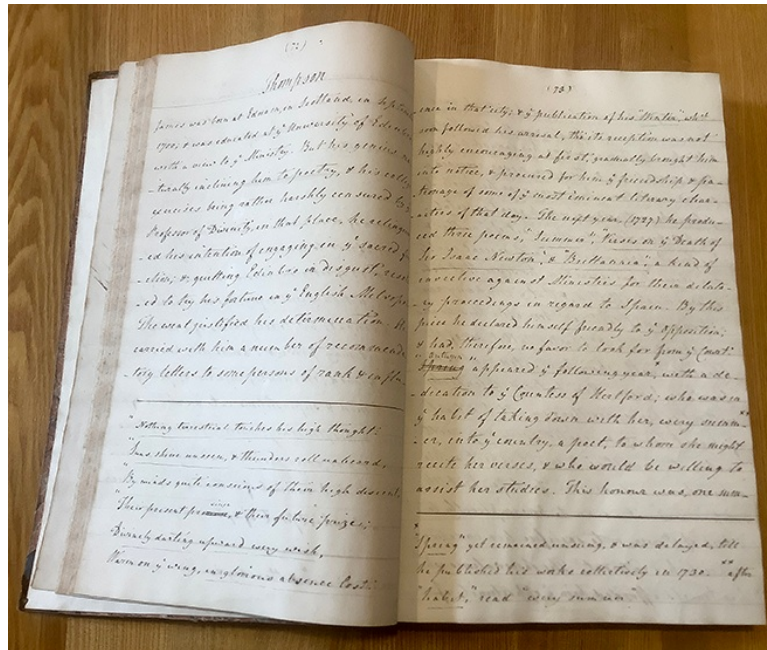 (72)
Thompson
James was born at Ednam, in Scotland, in Sep
1700, & was educated at ye University of Edin
with a view to ye Ministry. But his genius, na
-turally inclining him to poetry, & his
exercises being rather harshly censured by
Professor of Divinity, in that place, he relinqu
-ed his intention of engaging in ye sacred
& quitting Edinbro in disgust, resol
-ed to try his fortune in ye English Metropo
The event justified his determination. He
carried with him a number of recommenda
-tory letters to some persons of rank & influ
"Nothing terrestrial touches his high thought.
Suns shine unseen, & thunders roll unheard,
By minds quite conscious of their high descent,
Their present & their future prize;
Divinely darting upward every wish,
Warm on ye wing, in glorious absence lost."
(73)
ence in that city; & ye publication of his "Winter", which
soon followed his arrival, tho' its reception was not
highly encouraging at first, gradually brought him
into notice, & procured for him ye friendship & pa-
tronage of some of ye most eminent literary char-
acters of that day. The next year, (1727) he produ-
ced three poems, "Summer", Verses on ye Death of
Sir Isaac Newton", & "Brittannia", a kind of
invective against Ministers for their dilato-
ry proceedings in regard to Spain. By this
piece he declared himself friendly to ye Opposition;
& had, therefore, no favor to look for from ye Court.
Autumn
"Spring" appeared ye following year, with a de-
-dication to ye Countess of Hertford, who was in
ye habit of taking down with her, every summ-
-er, into ye country, a poet, to whom she might
recite her verses, & who would be willing to
assist her studies. This honour was, one sum-
*
"Spring" yet remained missing, & was delayed, till
he published his works collectively in 1730. ** after
"habit," read "every summer"